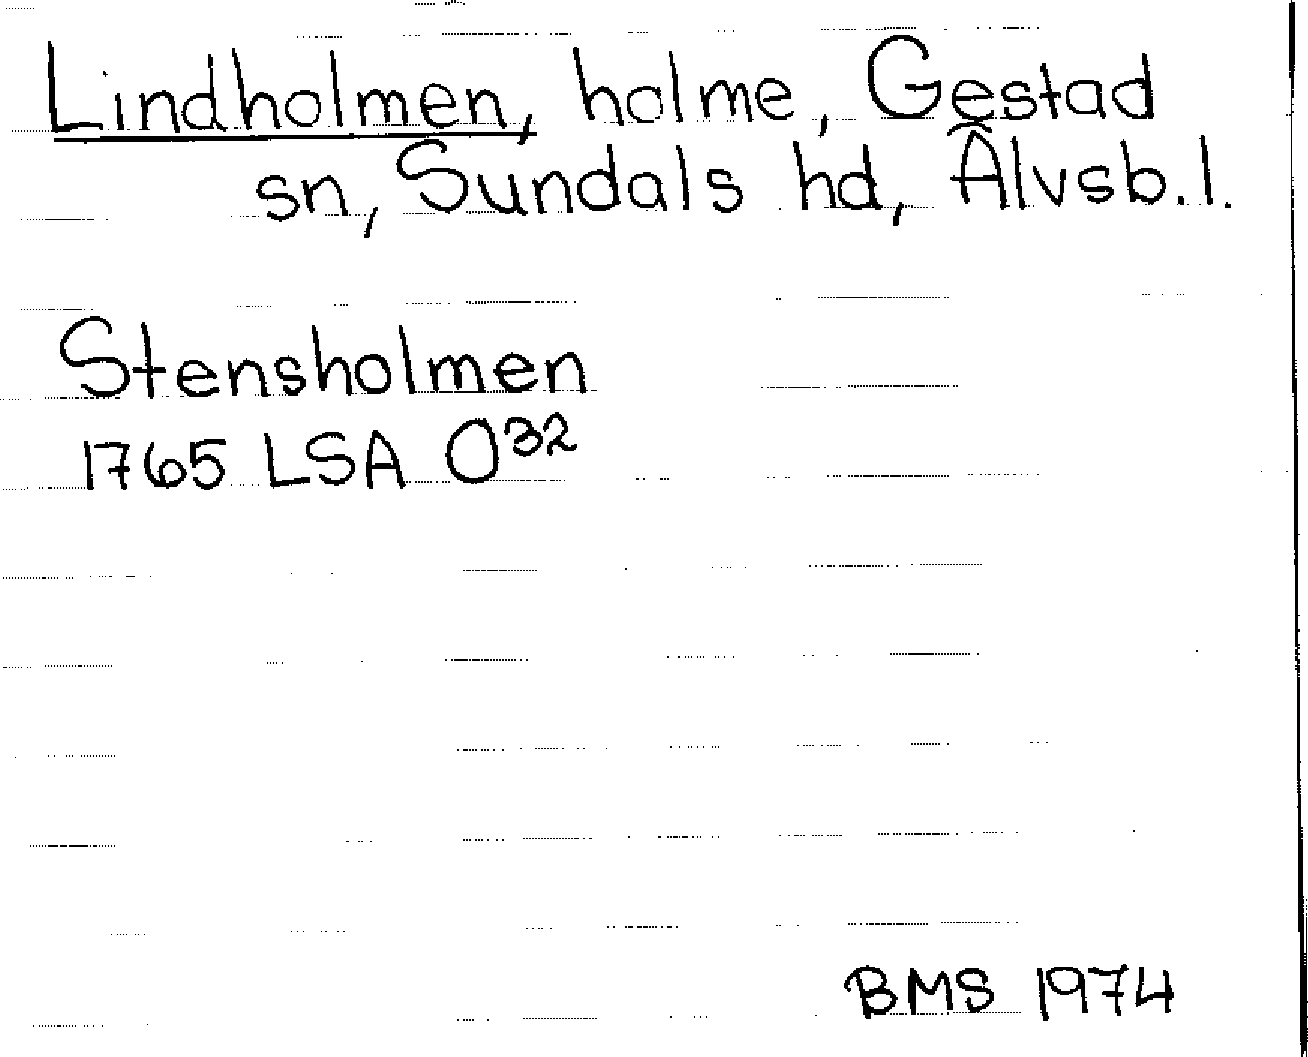 Lindholmen, holme, Gestad
sn, Sundals hd, Älvsb.l.
Stensholmen
1765 LSA O³²
BMS 1974